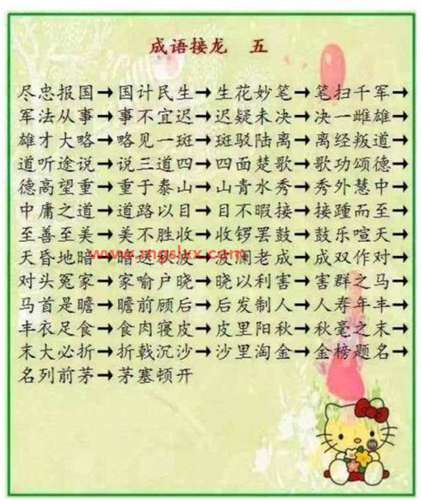 成语接龙 五
尽忠报国→国计民生→生花妙笔→笔扫千军→
军法从事→事不宜迟→迟疑未决→决一雌雄→
雄才大略→略见一斑→斑驳陆离→离经叛道→
道听途说→说三道四→四面楚歌→歌功颂德→
德高望重→重于泰山→山青水秀→秀外慧中→
中庸之道→道路以目→目不暇接→接踵而至→
至善至美→美不胜收→收锣罢鼓→鼓乐喧天→
天昏地暗→暗→成→成双作对→
对头冤家→家喻户晓→晓以利害→害群之马→
马首是瞻→瞻前顾后→后发制人→人寿年丰→
丰衣足食→食肉寝皮→皮里阳秋→秋毫之末→
末大必折→折戟沉沙→沙里淘金→金榜题名→
名列前茅→茅塞顿开